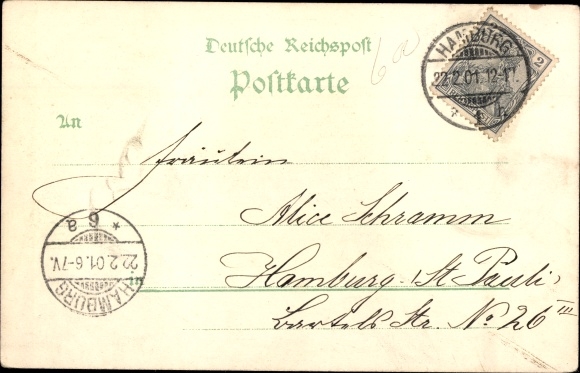 Deutsche Reichspost
Postkarte
6a
An
Fräulein
Alice Schramm
Hamburg. (St Pauli,
Bartels Str. No 26 III
HAMBURG
22.2.01.12-1
2
HAMBURG
22.2.01.6-7V.
* 6 a